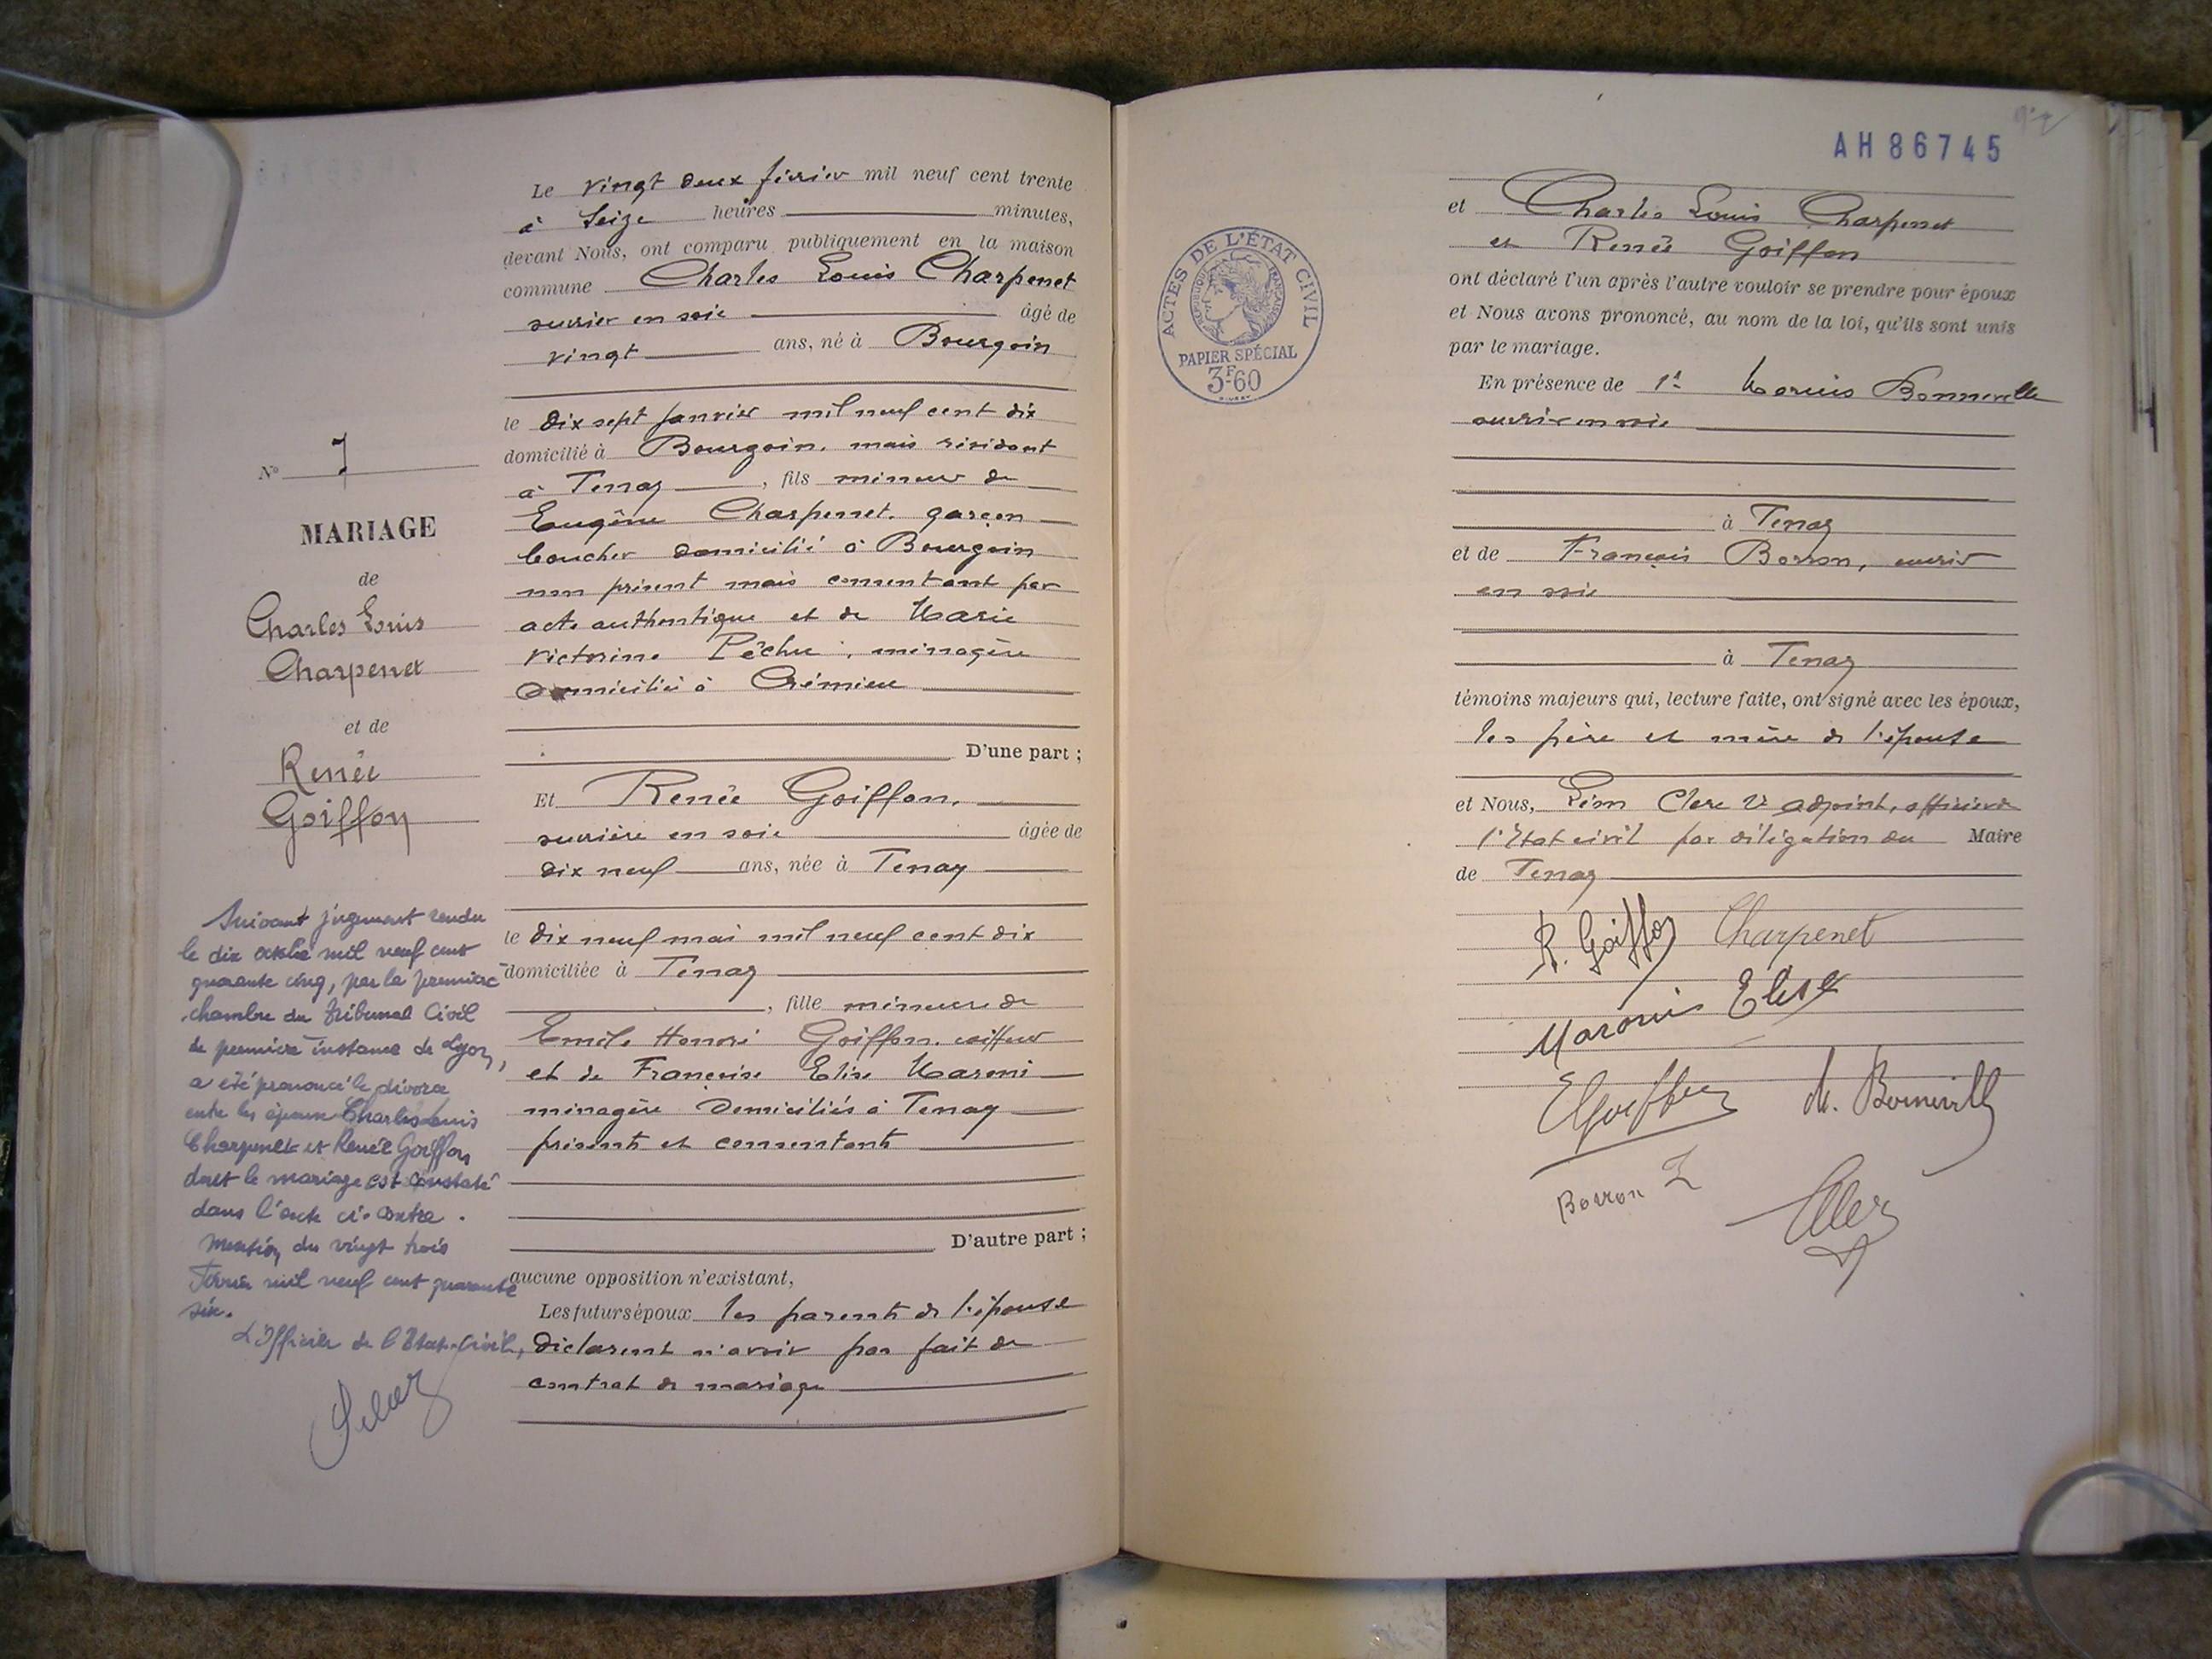 Le vingt deux février mil neuf cent trente
à Seize heures minutes,
devant Nous, ont comparu publiquement en la maison
commune Charles Louis Charpenet
ouvrier en soie âgé de
vingt ans, né à Bourgoin
le dix sept janvier mil neuf cent dix
domicilié à Bourgoin, mais résidant
à Tenay, fils mineur de
Eugène Charpenet, garçon
boucher domicilié à Bourgoin
non présent mais consentant par
acte authentique et de Marie
Victorine Péchu, ménagère
domiciliée à Crémieu
D'une part ;
Et Renée Goiffon,
ouvrière en soie âgée de
dix neuf ans, née à Tenay
le dix neuf mai mil neuf cent dix
domiciliée à Tenay
, fille mineure de
Emile Honoré Goiffon, coiffeur
et de Françoise Elise Maroni
ménagère domiciliés à Tenay
présents et consentants
D'autre part ;
aucune opposition n'existant,
Les futurs époux les parents de l'épouse
déclarent n'avoir pas fait de
contrat de mariage
No 7
MARIAGE
de
Charles Louis
Charpenet
et de
Renée
Goiffon
Suivant jugement rendu
le dix octobre mil neuf cent
quarante cinq, par la première
chambre du Tribunal Civil
de première instance de Lyon,
a été prononcé le divorce
entre les époux Charles Louis
Charpenet et Renée Goiffon
dont le mariage est constaté
dans l'acte ci-contre.
Mention du vingt trois
Février mil neuf cent quarante
six.
L'Officier de l'Etat-Civil,
AH 86745
ACTES DE L'ÉTAT CIVIL
RÉPUBLIQUE FRANÇAISE
PAPIER SPÉCIAL
3F60
et Charles Louis Charpenet
et Renée Goiffon
ont déclaré l'un après l'autre vouloir se prendre pour époux
et Nous avons prononcé, au nom de la loi, qu'ils sont unis
par le mariage.
En présence de 1º Marius Bonneville
ouvrier en soie
à Tenay
et de François Borron, ouvrier
en soie
à Tenay
témoins majeurs qui, lecture faite, ont signé avec les époux,
les père et mère de l'épouse
et Nous, Léon Clerc 2e adjoint, officier de
l'Etat civil par délégation du Maire
de Tenay
R. Goiffon Charpenet
Maroni Elise
EGoiffon M. Bonneville
Borron